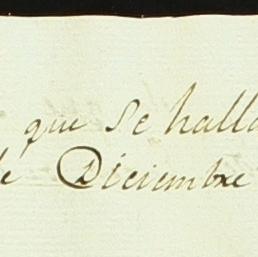 que se halla
de Diciembre